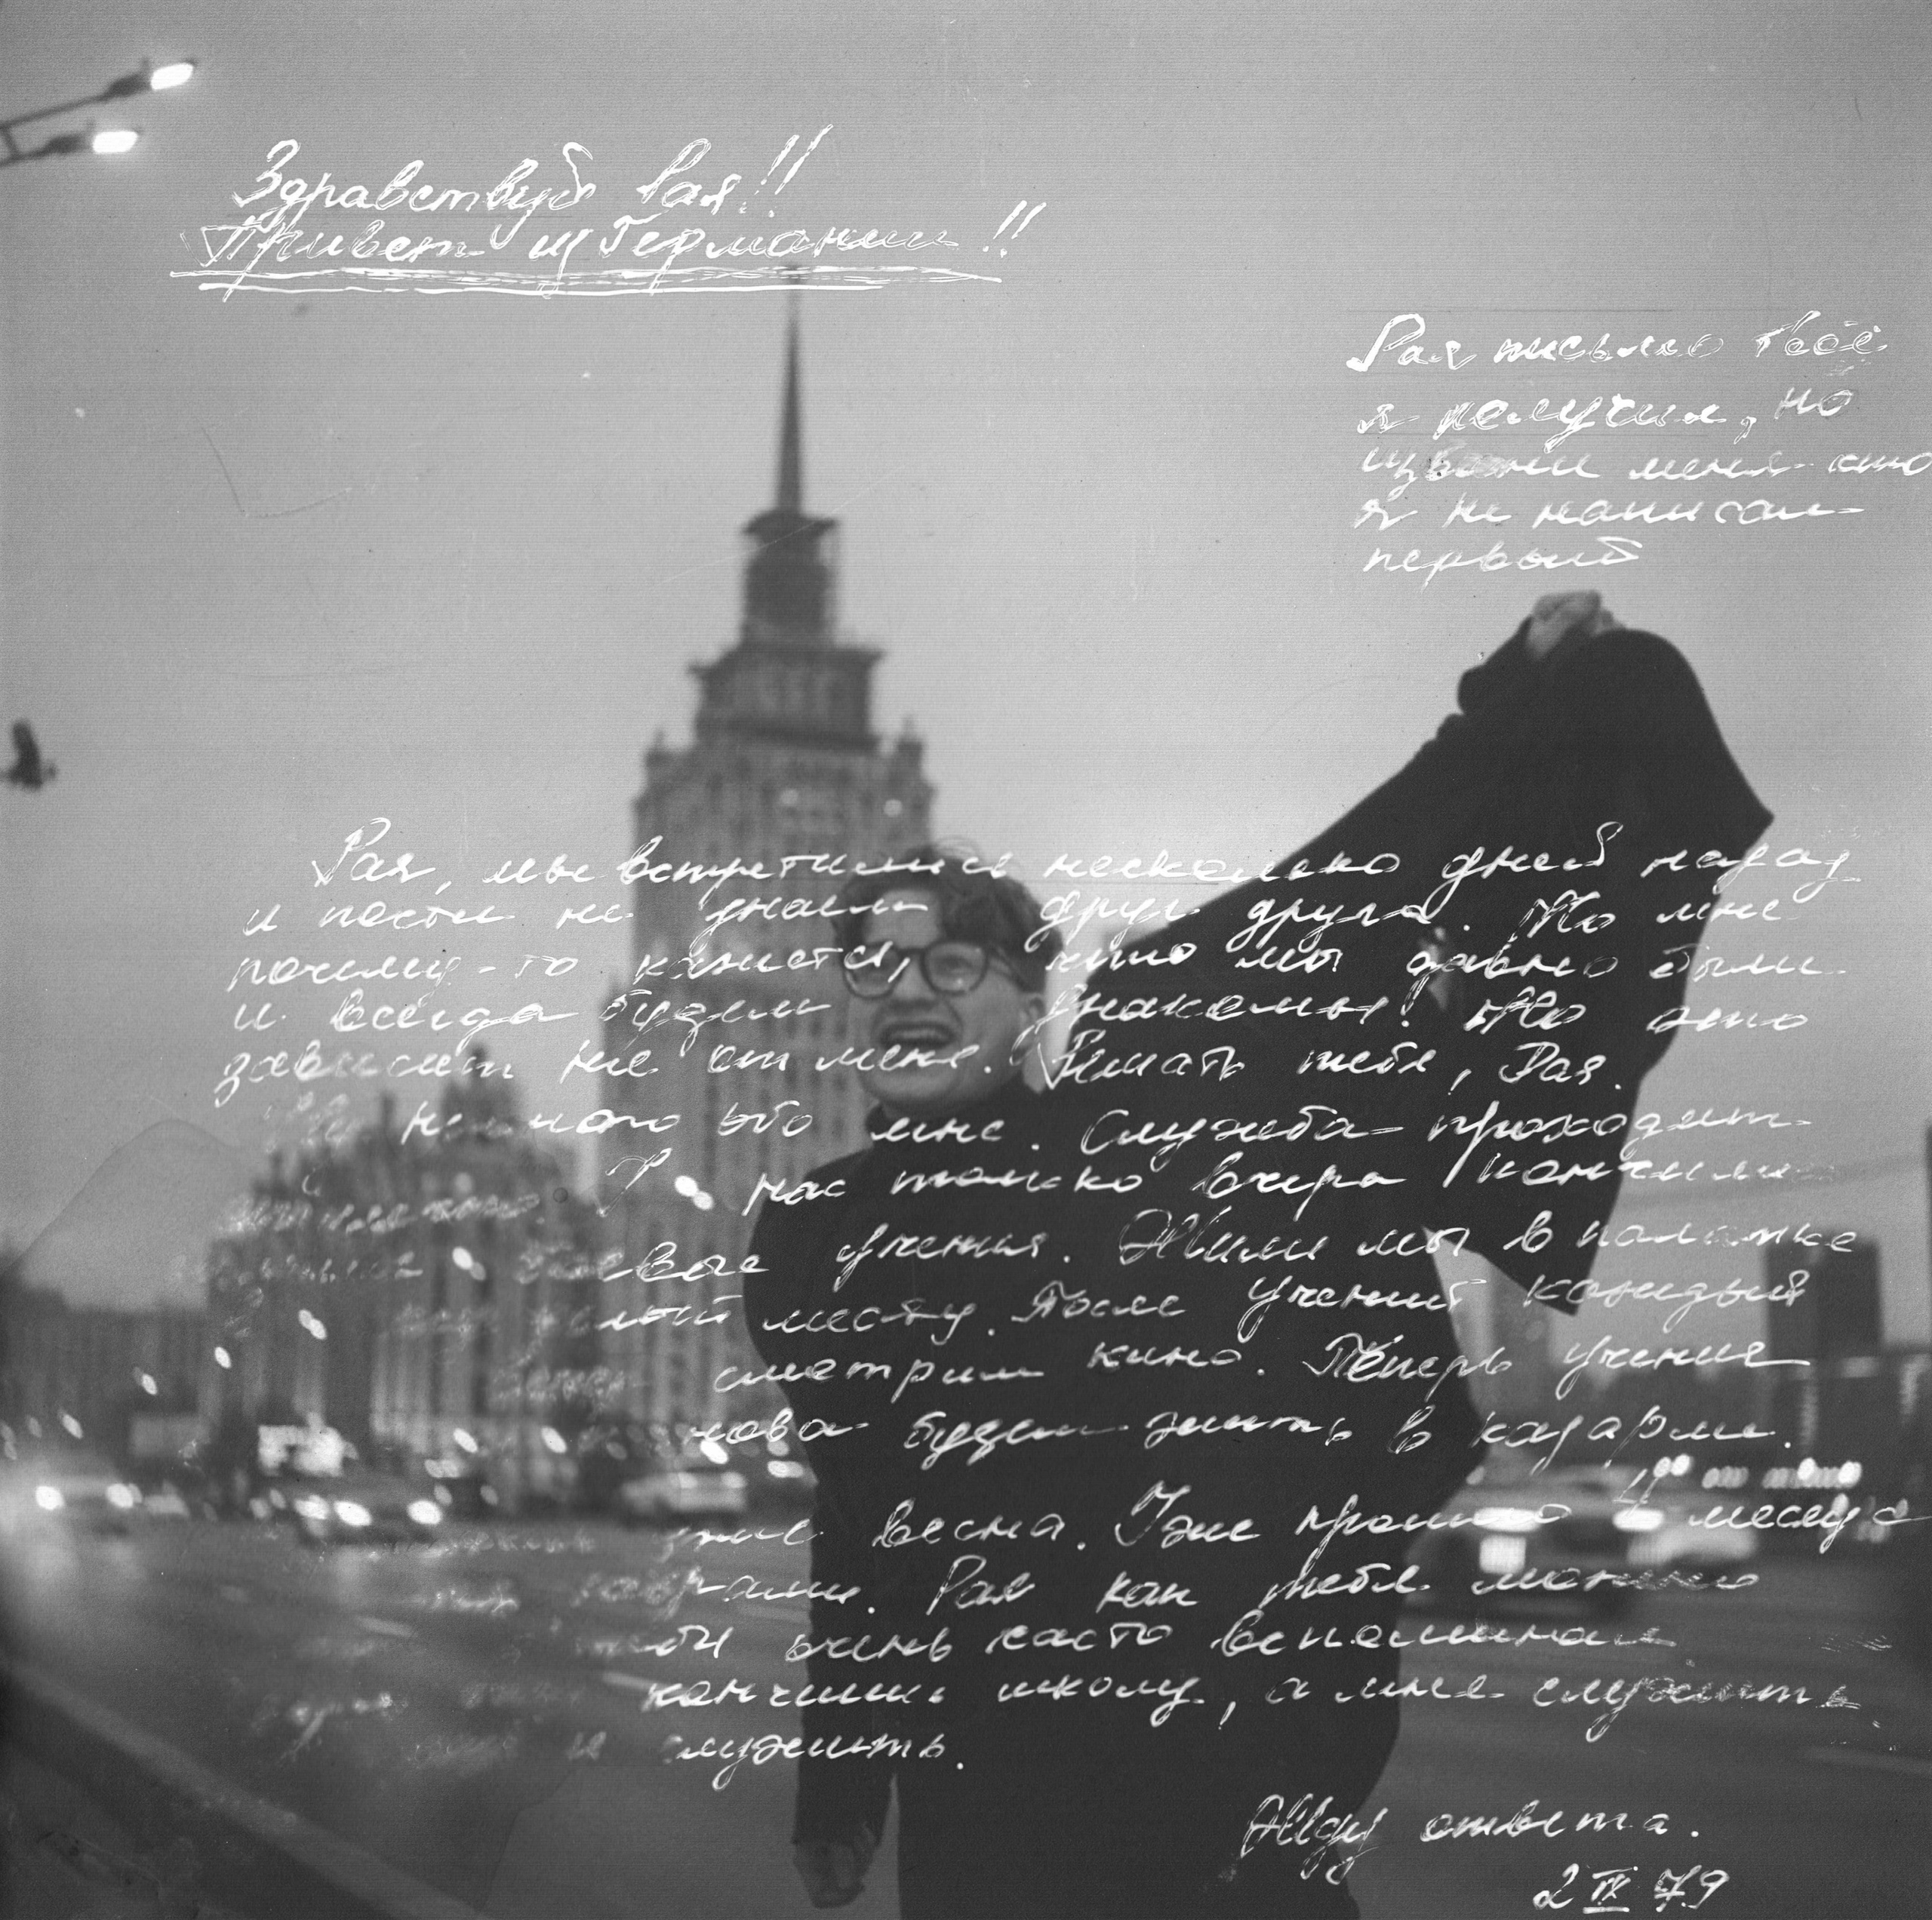 Здравствуй Рая!!
Привет из Германии!!
Рая письмо твоё
я получил, но
извени меня што
я не написал
первый
Рая, мы встретились несколько дней назад
и почти не знаем друг друга. Но мне
почему-то кажется, что мы давно были
и всегда будем знакомы! Но это
зависит не от меня. Решать тебе, Рая.
немного обо мне. Служба проходит
У нас только вчера кончились
боевые учения. Жили мы в палатке
целый месяц. После учений каждый
смотрим кино. Теперь учение
нова будем жить в казарме.
уже весна. Уже прошло 4 месяца
Рая как тебя можно
очень часто вспоминаем
кончишь школу, а мне служить
и служить.
Жду ответа.
2 IV 79